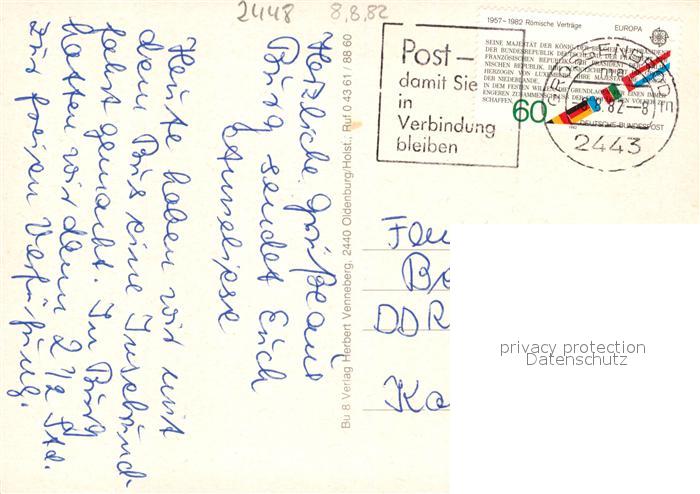 2448 8.8.82
Herzliche Grüße aus
Burg sendet Euch
Anneliese
Heute haben wir mit
dem Bus eine Inselrund-
fahrt gemacht. In Burg
hatten wir dann 2 1/2 Std.
zur freien Verfügung.
Bu 8 Verlag Herbert Venneberg, 2440 Oldenburg/Holst., Ruf 0 43 61 / 88 60
Post –
damit Sie
in
Verbindung
bleiben
1957–1982 Römische Verträge EUROPA
SEINE MAJESTÄT DER KÖNIG DER BELGIER, DER PRÄSIDENT
DER BUNDESREPUBLIK DEUTSCHLAND, DER PRÄSIDENT DER
FRANZÖSISCHEN REPUBLIK, DER PRÄSIDENT DER
HERZOGIN VON LUXEMBURG, IHRE MAJESTÄT
DER NIEDERLANDE
IN DEM FESTEN WILLEN, DIE GRUNDLAGEN FÜR EINEN
ENGEREN ZUSAMMENSCHLUSS DER
SCHAFFEN
60
DEUTSCHE BUNDESPOST
.8.82–8
2443
DDR
privacy protection
Datenschutz